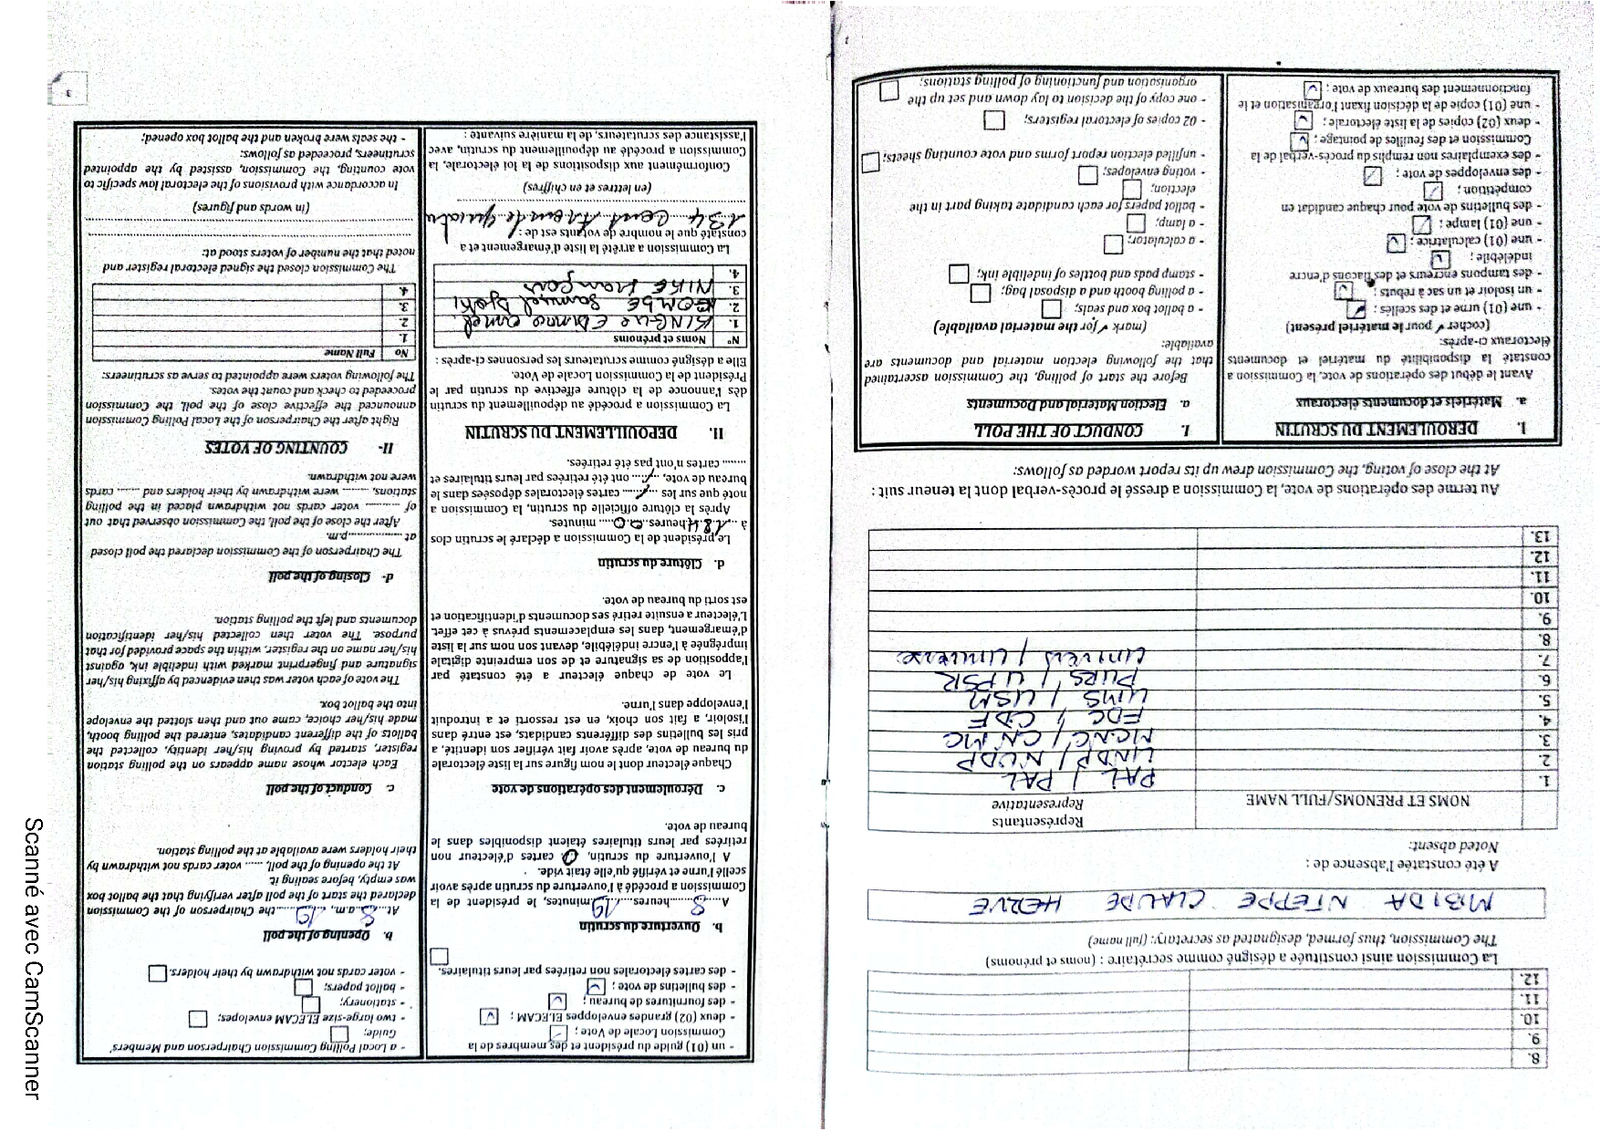 8.
9.
10.
11.
12.
La Commission ainsi constituée a désigné comme secrétaire : (noms et prénoms)
The Commission, thus formed, designated as secretary: (full name)
MBIDA NTEPPE CLAUDE HERVE
A été constatée l'absence de :
Noted absent:
NOMS ET PRENOMS/FULL NAME
Représentants
Representative
1. PAL / PAL
2. UNDP / NUDP
3. MCNC / CNMC
4. FDC / CDF
5. UMS / USM
6. PURS / UPSR
7. Univers / Universe
8.
9.
10.
11.
12.
13.
Au terme des opérations de vote, la Commission a dressé le procès-verbal dont la teneur suit :
At the close of voting, the Commission drew up its report worded as follows:
I. DEROULEMENT DU SCRUTIN
a. Matériels et documents électoraux
Avant le début des opérations de vote, la Commission a
constaté la disponibilité du matériel et documents
électoraux ci-après:
(cocher ✓ pour le matériel présent)
- une (01) urne et des scellés ;
- un isoloir et un sac à rebuts ;
- des tampons encreurs et des flacons d'encre
indélébile ;
- une (01) calculatrice ;
- une (01) lampe ;
- des bulletins de vote pour chaque candidat en
compétition ;
- des enveloppes de vote ;
- des exemplaires non remplis du procès-verbal de la
Commission et des feuilles de pointage ;
- deux (02) copies de la liste électorale ;
- une (01) copie de la décision fixant l'organisation et le
fonctionnement des bureaux de vote ;
I. CONDUCT OF THE POLL
a. Election Material and Documents
Before the start of polling, the Commission ascertained
that the following election material and documents are
available:
(mark ✓ for the material available)
- a ballot box and seals;
- a polling booth and a disposal bag;
- stamp pads and bottles of indelible ink;
- a calculator;
- a lamp;
- ballot papers for each candidate taking part in the
election;
- voting envelopes;
- unfilled election report forms and vote counting sheets;
- 02 copies of electoral registers;
- one copy of the decision to lay down and set up the
organisation and functioning of polling stations;
- un (01) guide du président et des membres de la
Commission Locale de Vote ;
- deux (02) grandes enveloppes ELECAM ;
- des fournitures de bureau ;
- des bulletins de vote ;
- des cartes électorales non retirées par leurs titulaires.
b. Ouverture du scrutin
A 8 heures 19 minutes, le président de la
Commission a procédé à l'ouverture du scrutin après avoir
scellé l'urne et vérifié qu'elle était vide.
A l'ouverture du scrutin, 0 cartes d'électeur non
retirées par leurs titulaires étaient disponibles dans le
bureau de vote.
c. Déroulement des opérations de vote
Chaque électeur dont le nom figure sur la liste électorale
du bureau de vote, après avoir fait vérifier son identité, a
pris les bulletins des différents candidats, est entré dans
l'isoloir, a fait son choix, en est ressorti et a introduit
l'enveloppe dans l'urne.
Le vote de chaque électeur a été constaté par
l'apposition de sa signature et de son empreinte digitale
imprégnée à l'encre indélébile, devant son nom sur la liste
d'émargement, dans les emplacements prévus à cet effet.
L'électeur a ensuite retiré ses documents d'identification et
est sorti du bureau de vote.
d. Clôture du scrutin
Le président de la Commission a déclaré le scrutin clos
à 18 heures 00 minutes.
Après la clôture officielle du scrutin, la Commission a
noté que sur les / cartes électorales déposées dans le
bureau de vote, / ont été retirées par leurs titulaires et
...... cartes n'ont pas été retirées.
II. DEPOUILLEMENT DU SCRUTIN
La Commission a procédé au dépouillement du scrutin
dès l'annonce de la clôture effective du scrutin par le
Président de la Commission Locale de Vote.
Elle a désigné comme scrutateurs les personnes ci-après :
N° Noms et prénoms
1.
2. Samuel
3. NIKE François
4.
La Commission a arrêté la liste d'émargement et a
constaté que le nombre de votants est de :
134 Cent trente quatre
(en lettres et en chiffres)
Conformément aux dispositions de la loi électorale, la
Commission a procédé au dépouillement du scrutin, avec
l'assistance des scrutateurs, de la manière suivante :
- a Local Polling Commission Chairperson and Members'
Guide;
- two large-size ELECAM envelopes;
- stationery;
- ballot papers;
- voter cards not withdrawn by their holders.
b. Opening of the poll
At 8 a.m., 19 the Chairperson of the Commission
declared the start of the poll after verifying that the ballot box
was empty, before sealing it.
At the opening of the poll, ...... voter cards not withdrawn by
their holders were available at the polling station.
c. Conduct of the poll
Each elector whose name appears on the polling station
register, started by proving his/her identity, collected the
ballots of the different candidates, entered the polling booth,
made his/her choice, came out and then slotted the envelope
into the ballot box.
The vote of each voter was then evidenced by affixing his/her
signature and fingerprint marked with indelible ink, against
his/her name on the register, within the space provided for that
purpose. The voter then collected his/her identification
documents and left the polling station.
d- Closing of the poll
The Chairperson of the Commission declared the poll closed
at ..................p.m.
After the close of the poll, the Commission observed that out
of ......... voter cards not withdrawn placed in the polling
stations, ........ were withdrawn by their holders and ...... cards
were not withdrawn.
II- COUNTING OF VOTES
Right after the Chairperson of the Local Polling Commission
announced the effective close of the poll, the Commission
proceeded to check and count the votes.
The following voters were appointed to serve as scrutineers:
No Full Name
1.
2.
3.
4.
The Commission closed the signed electoral register and
noted that the number of voters stood at:
(in words and figures)
In accordance with provisions of the electoral law specific to
vote counting, the Commission, assisted by the appointed
scrutineers, proceeded as follows:
- the seals were broken and the ballot box opened;
3
Scanné avec CamScanner